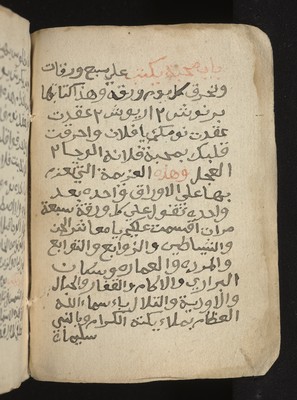 باب محبة يكتب علي سبع ورقات
وتحرق كل يوم ورقة وهذا كتابها
برنوش ٢ اريوش ٢ عقدت
عقدت نومك يا فلان واحرقت
قلبك بمحبة فلانة الوحا ٢
العجل وهذه العزيمة التي تعزم
بها علي الاوراق واحده بعد
واحده تقرا علي كل ورقة سبعة
مرات اقسمت عليكم يا معاشر الجن
والشياطين والزوابع والتوابع
والمرده والعماره وسكان
البراري والاكام والقفار والجبال
والاودية والتلال باسماء الله
العظام بملايكته الكرام وبالنبي
سليمان